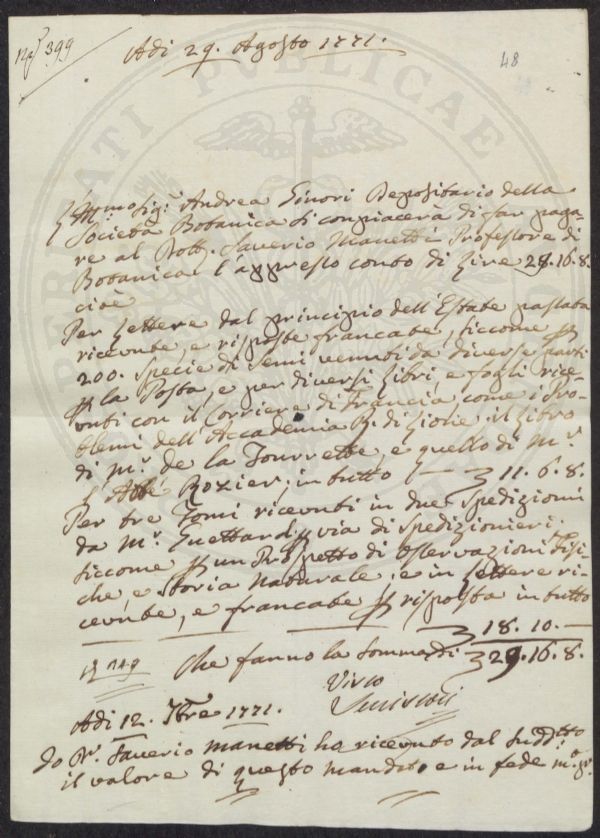 N.º 399
Adi 29. Agosto 1771.
48
Ill.mo Sig.r Andrea Ginori Depositario della
Società Botanica si compiacerà di far paga-
re al Dott. Saverio Manetti Professore di
Botanica l'appresso conto di Lire 29.16.8.
cioè
Per Lettere dal principio dell'Estate passata
ricevute, e risposte francate, siccome p
200. Specie di Semi venuti da diverse parti
p la Posta, e per diversi Libri, e fogli rice-
vuti con il Corriere di Francia come i Pro-
blemi dell'Accademia R. di Lione, il Libro
di M.r de la Tourrette, e quello di M.r
l'Abbé Rozier; in tutto — 11. 6. 8.
Per tre Tomi ricevuti in due Spedizioni
da M.r Guettard p via di Spedizionieri.
siccome p un Prospetto di Osservazioni Fisi-
che, e Storia Naturale, e in Lettere ri-
cevute, e francate p risposta in tutto
18. 10. —
Che fanno la Somma di 29.16.8.
Visto
Adi 12. 7bre 1771.
Io D.r Saverio Manetti ho ricevuto dal Sudd.tto
il valore di questo mandato, e in fede m.º p.ª